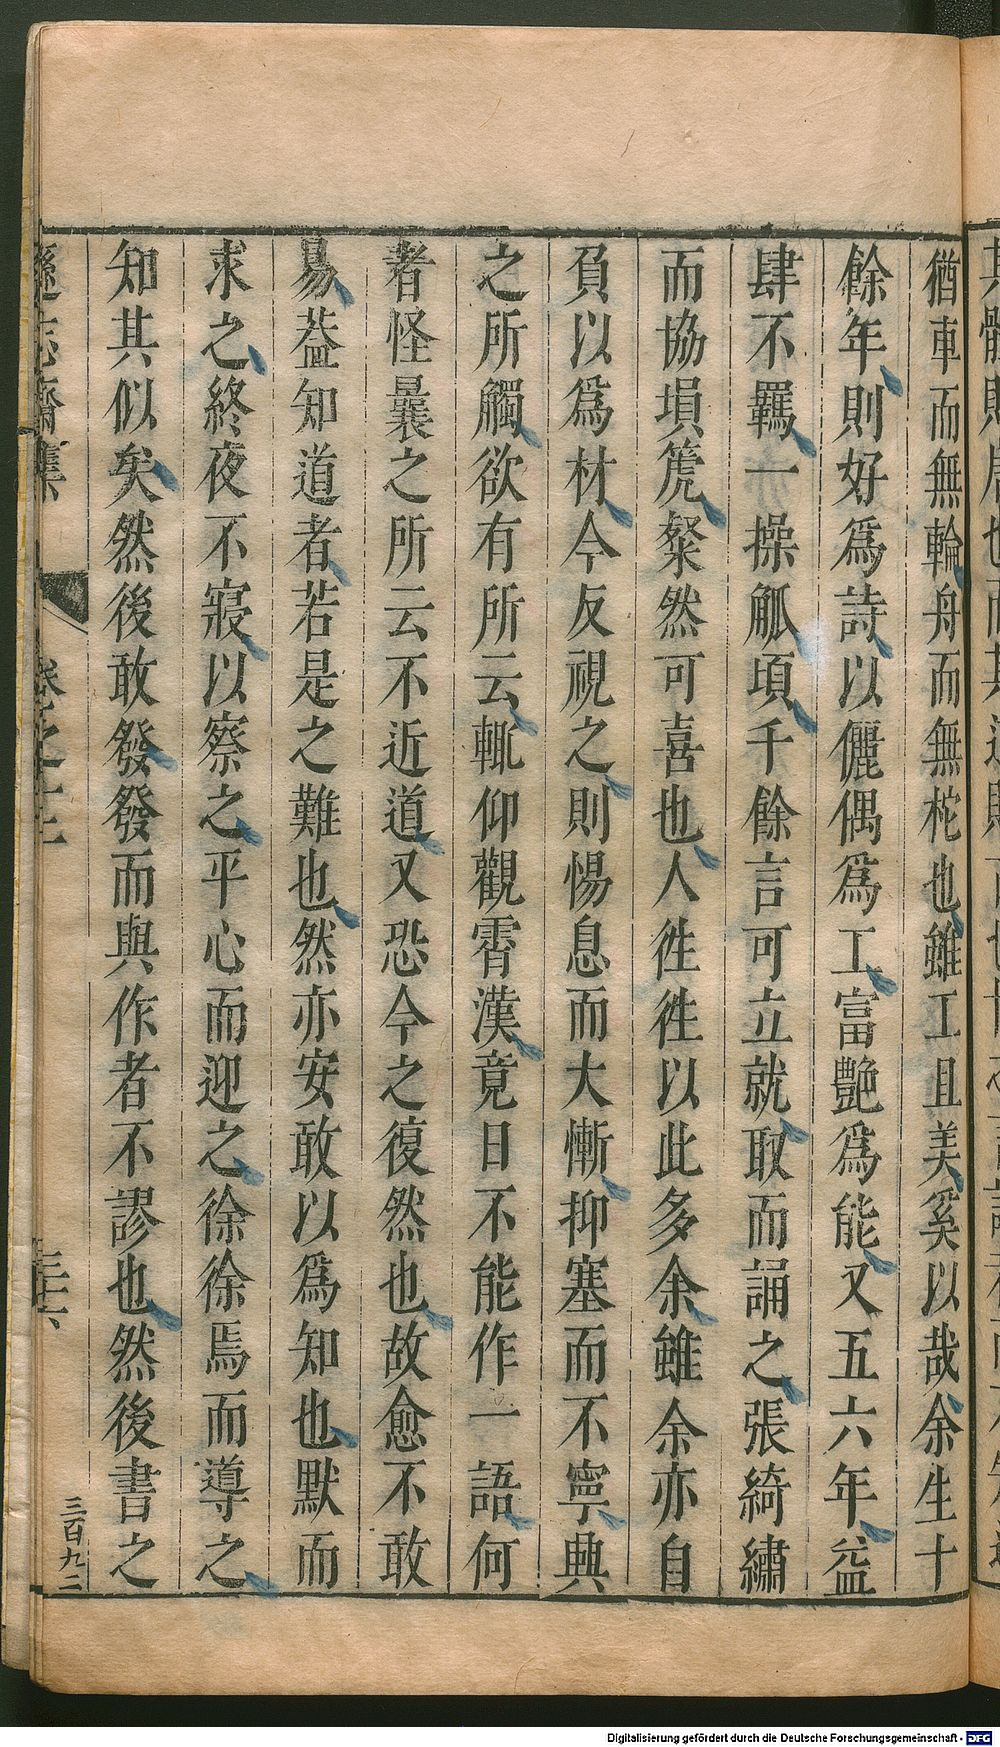 猶車而無輪舟而無柁也雖工且美奚以哉余生十
餘年則好爲詩以儷偶爲工富艷爲能又五六年益
肆不羈一操觚頃千餘言可立就取而誦之張綺繡
而協塤篪粲然可喜也人徃徃以此多余雖余亦自
負以爲材今反視之則惕息而大慚抑塞而不寧興
之所觸欲有所云輒仰觀霄漢竟日不能作一語何
者怪曩之所云不近道又恐今之復然也故愈不敢
易葢知道者若是之難也然亦安敢以爲知也默而
求之終夜不寢以察之平心而迎之徐徐焉而導之
知其似矣然後敢發發而與作者不謬也然後書之
遜志齋集
卷之十二
三十六
三百九二
Digitalisierung gefördert durch die Deutsche Forschungsgemeinschaft - DFG